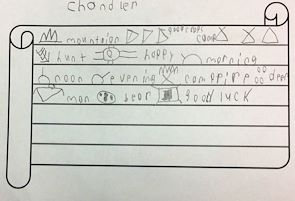 Chandler
mountain good crops camp
hunt happy morning
noon evening campfire deer
man bear good luck